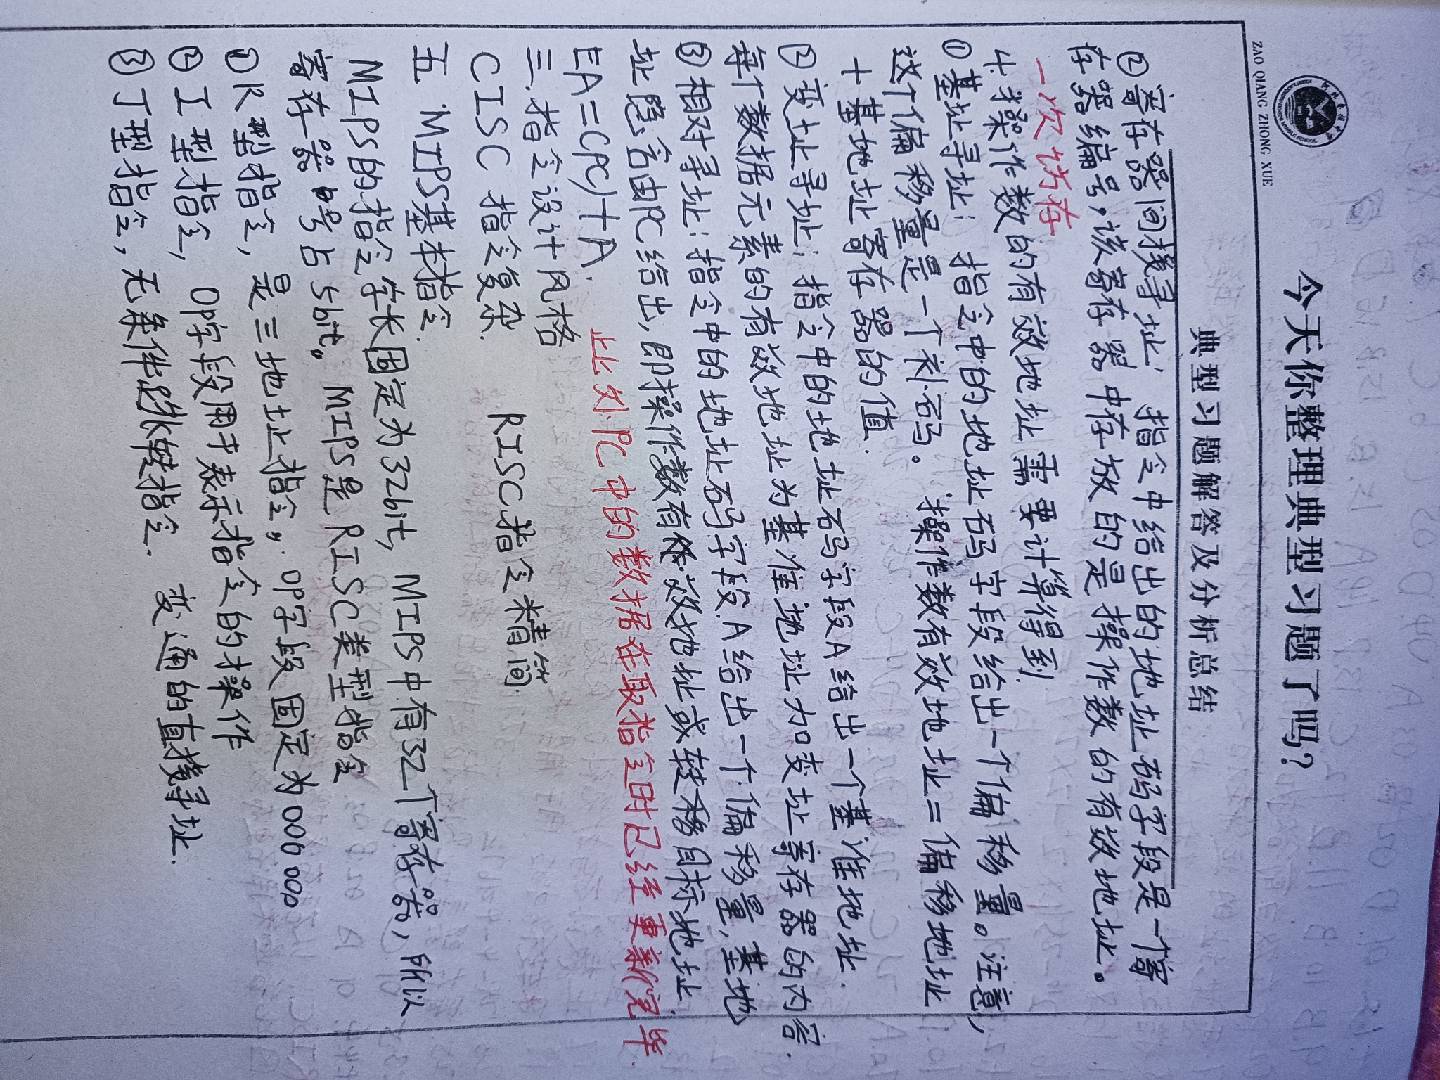 今天你整理典型习题了吗?
ZAO QIANG ZHONG XUE
典型习题解答及分析总结
②寄存器间接寻址：指令中给出的地址码字段是一个寄
存器编号，该寄存器中存放的是操作数的有效地址。
一次访存
4.操作数的有效地址需要计算得到
①基址寻址：指令中的地址码字段给出一个偏移量。注意，
这个偏移量是一个补码。操作数有效地址=偏移地址
+基地址寄存器的值.
②变址寻址；指令中的地址码字段A给出一个基准地址.
每个数据元素的有效地址为基准地址加变址寄存器的内容.
③相对寻址：指令中的地址码字段A给出一个偏移量,基地
址隐含由PC给出,即操作数有效地址或转移目标地址.
EA=(PC)+A. 此处PC中的数据在取指令时已经更新完毕.
三.指令设计风格
CISC 指令复杂. RISC指令精简.
五 MIPS基本指令.
MIPS的指令字长固定为32bit, MIPS中有32个寄存器,所以
寄存器号占5bit。MIPS是RISC类型指令
①R型指令,是三地址指令。OP字段固定为000000
②I型指令,OP字段用于表示指令的操作
③J型指令,无条件跳转指令. 变通的直接寻址.